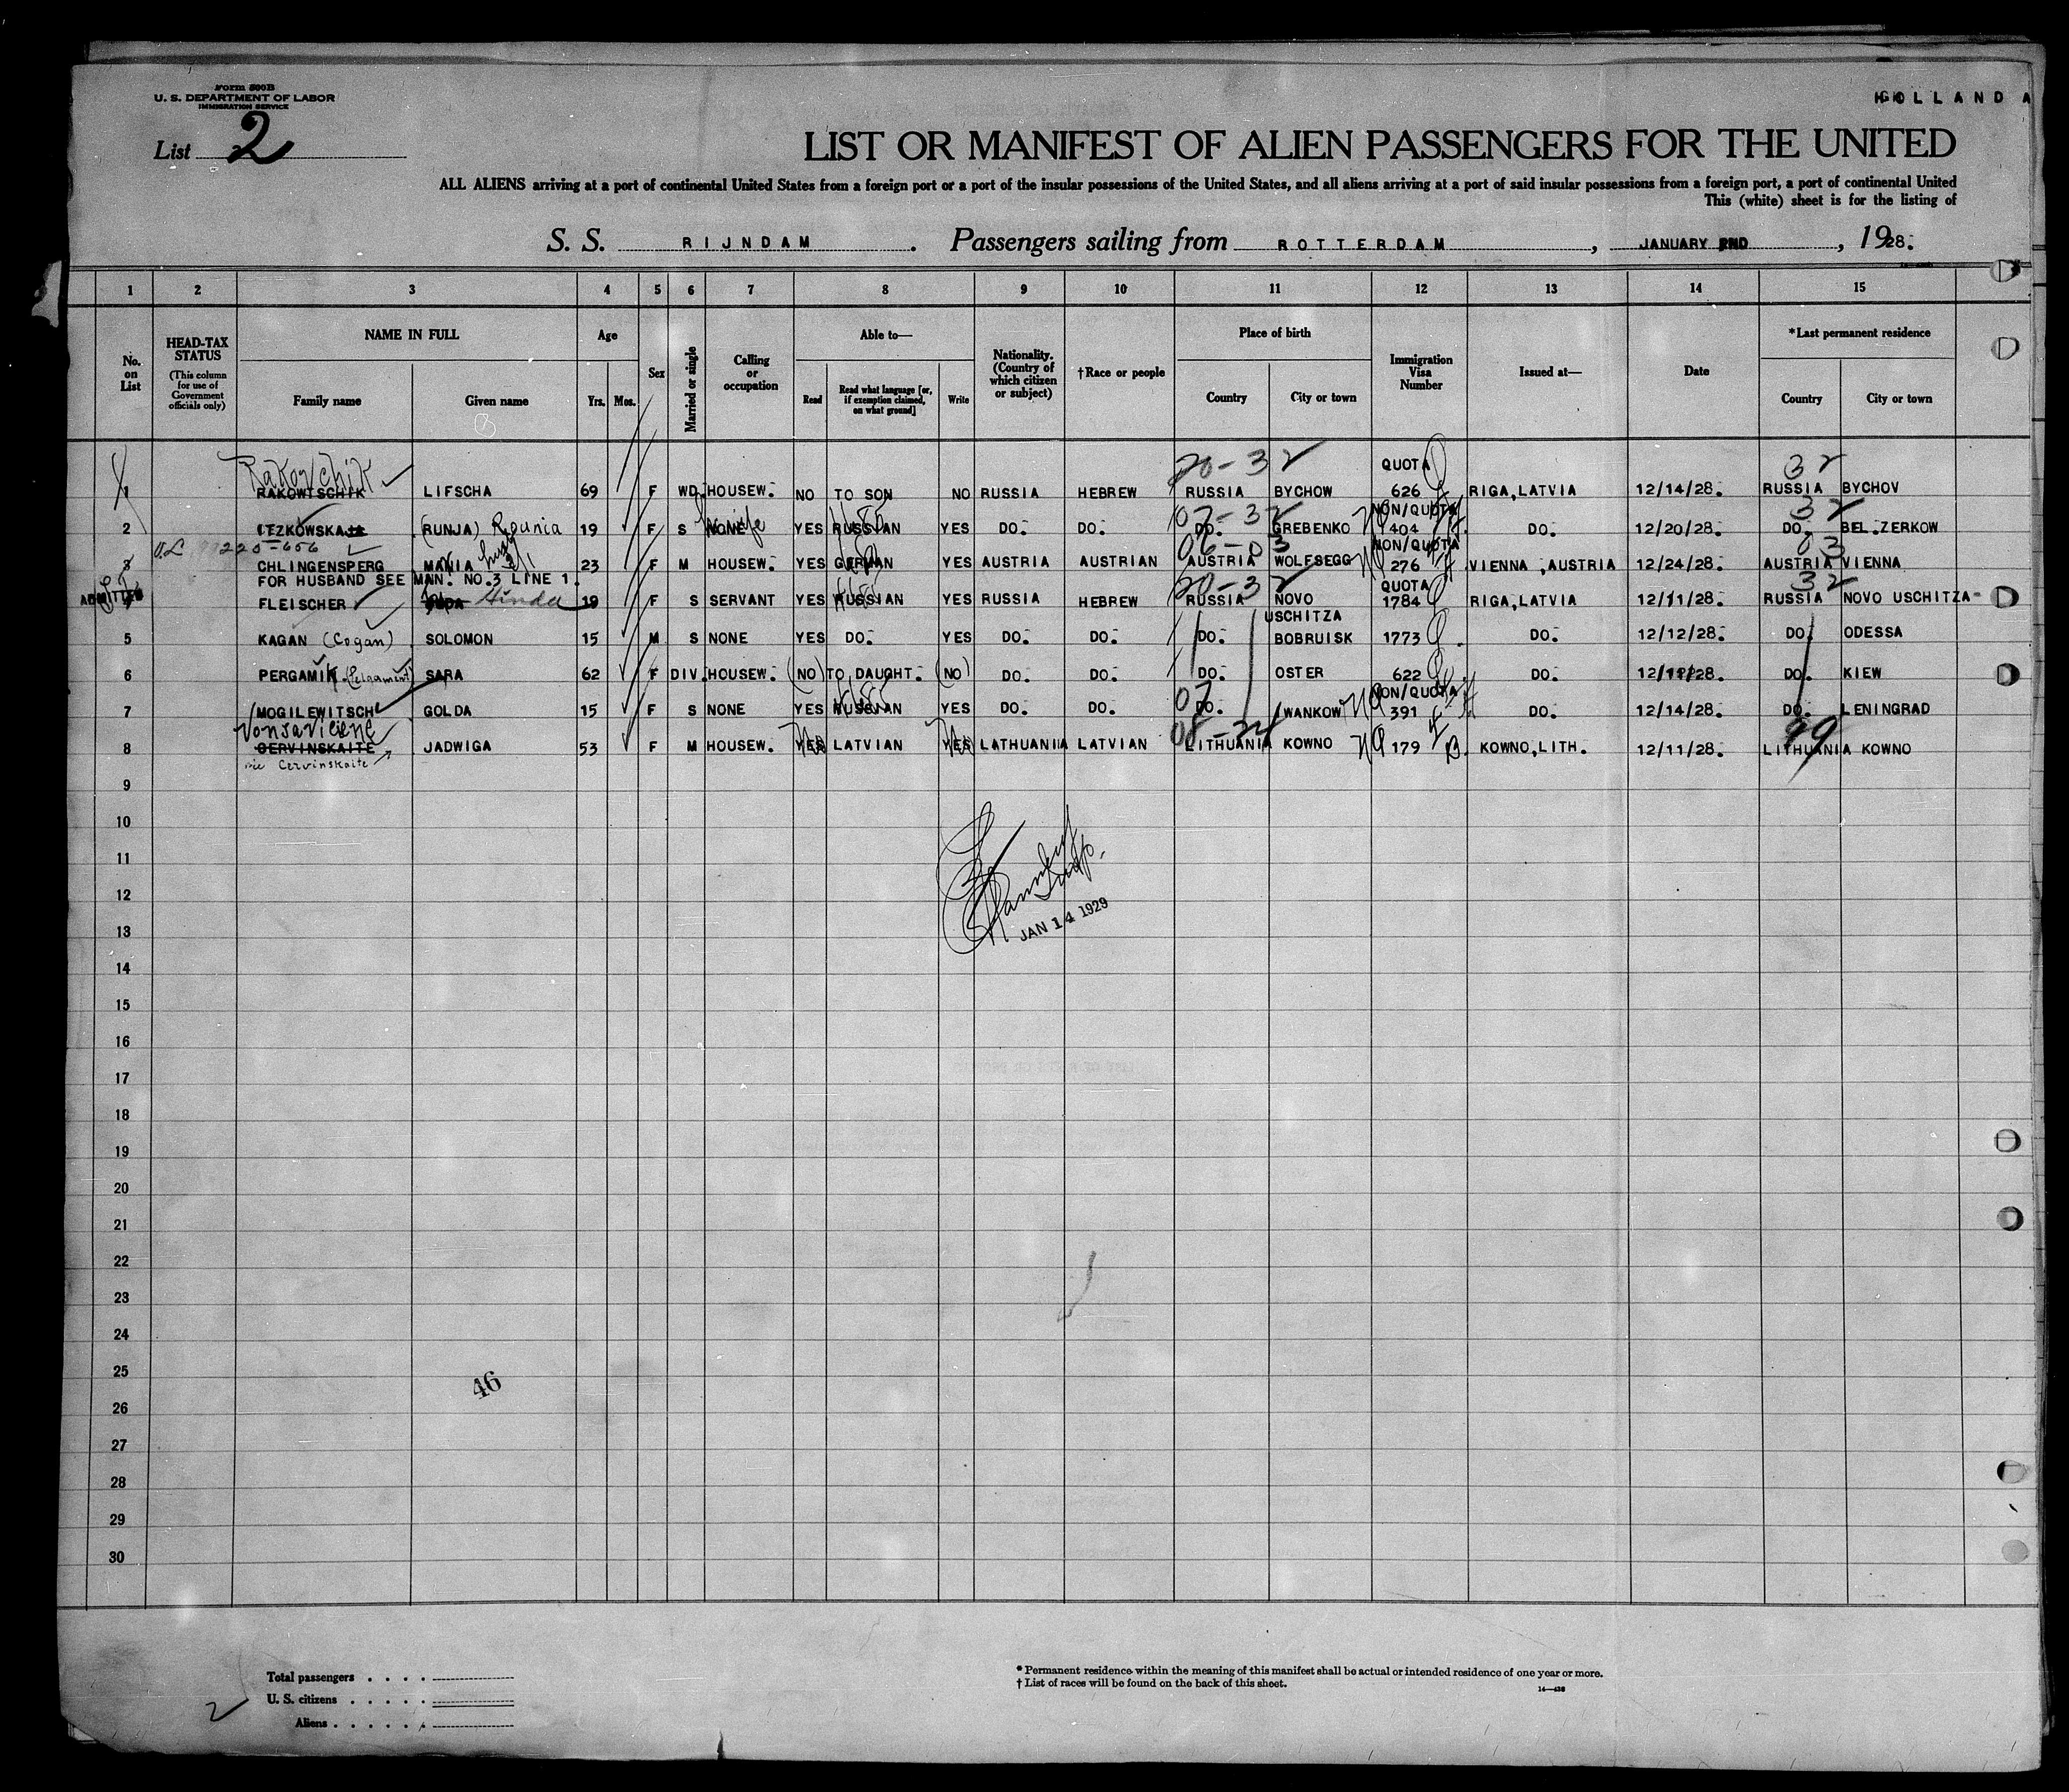 Form 500B
U. S. DEPARTMENT OF LABOR
IMMIGRATION SERVICE
HOLLAND A
List 2
LIST OR MANIFEST OF ALIEN PASSENGERS FOR THE UNITED
ALL ALIENS arriving at a port of continental United States from a foreign port or a port of the insular possessions of the United States, and all aliens arriving at a port of said insular possessions from a foreign port, a port of continental United
This (white) sheet is for the listing of
S. S. RIJNDAM. Passengers sailing from ROTTERDAM, JANUARY 2ND, 1928.
1 2 3 4 5 6 7 8 9 10 11 12 13 14 15
No. on List
HEAD-TAX STATUS
(This column for use of Government officials only)
NAME IN FULL
Family name Given name
Age
Yrs. Mos.
Sex
Married or single
Calling or occupation
Able to—
Read
Read what language [or, if exemption claimed, on what ground]
Write
Nationality. (Country of which citizen or subject)
†Race or people
Place of birth
Country City or town
Immigration Visa Number
Issued at—
Date
*Last permanent residence
Country City or town
Rakovchik 20-32 QUOTA 32
1 RAKOWTSCHIK LIFSCHA 69 F WD. HOUSEW. NO TO SON NO RUSSIA HEBREW RUSSIA BYCHOW 626 RIGA,LATVIA 12/14/28. RUSSIA BYCHOV
07-32 NON/QUOTA 32
2 LEZKOWSKAJA (RUNJA) Rgunia 19 F S NONE wife YES RUSSIAN YES DO. DO. DO. GREBENKO NQ 404 DO. 12/20/28. DO. BEL.ZERKOW
225-606 06-03 NON/QUOTA 03
3 CHLINGENSPERG MARIA 23 F M HOUSEW. YES GERMAN YES AUSTRIA AUSTRIAN AUSTRIA WOLFSEGG NQ 276 VIENNA ,AUSTRIA 12/24/28. AUSTRIA VIENNA
FOR HUSBAND SEE MAN. NO.3 LINE 1. 20-32 QUOTA 32
ADMITTED
4 FLEISCHER Hinda 19 F S SERVANT YES RUSSIAN YES RUSSIA HEBREW RUSSIA NOVO 1784 RIGA,LATVIA 12/11/28. RUSSIA NOVO USCHITZA
USCHITZA
5 KAGAN (Cogan) SOLOMON 15 M S NONE YES DO. YES DO. DO. DO. BOBRUISK 1773 DO. 12/12/28. DO. ODESSA
6 PERGAMIK (Pergament) SARA 62 F DIV. HOUSEW. (NO) TO DAUGHT. (NO) DO. DO. DO. OSTER 622 DO. 12/11/28. DO. KIEW
07 NON/QUOTA
7 MOGILEWITSCH GOLDA 15 F S NONE YES RUSSIAN YES DO. DO. DO. IWANKOW NQ 391 DO. 12/14/28. DO. LENINGRAD
08-24 99
8 CERVINSKAITE JADWIGA 53 F M HOUSEW. YES LATVIAN YES LATHUANIA LATVIAN LITHUANIA KOWNO NQ 179 KOWNO,LITH. 12/11/28. LITHUANIA KOWNO
née Cervinskaite
9
10
11
12
JAN 14 1929
13
14
15
16
17
18
19
20
21
22
23
24
25
46
26
27
28
29
30
Total passengers
U. S. citizens
Aliens
2
* Permanent residence within the meaning of this manifest shall be actual or intended residence of one year or more.
† List of races will be found on the back of this sheet.
14—438